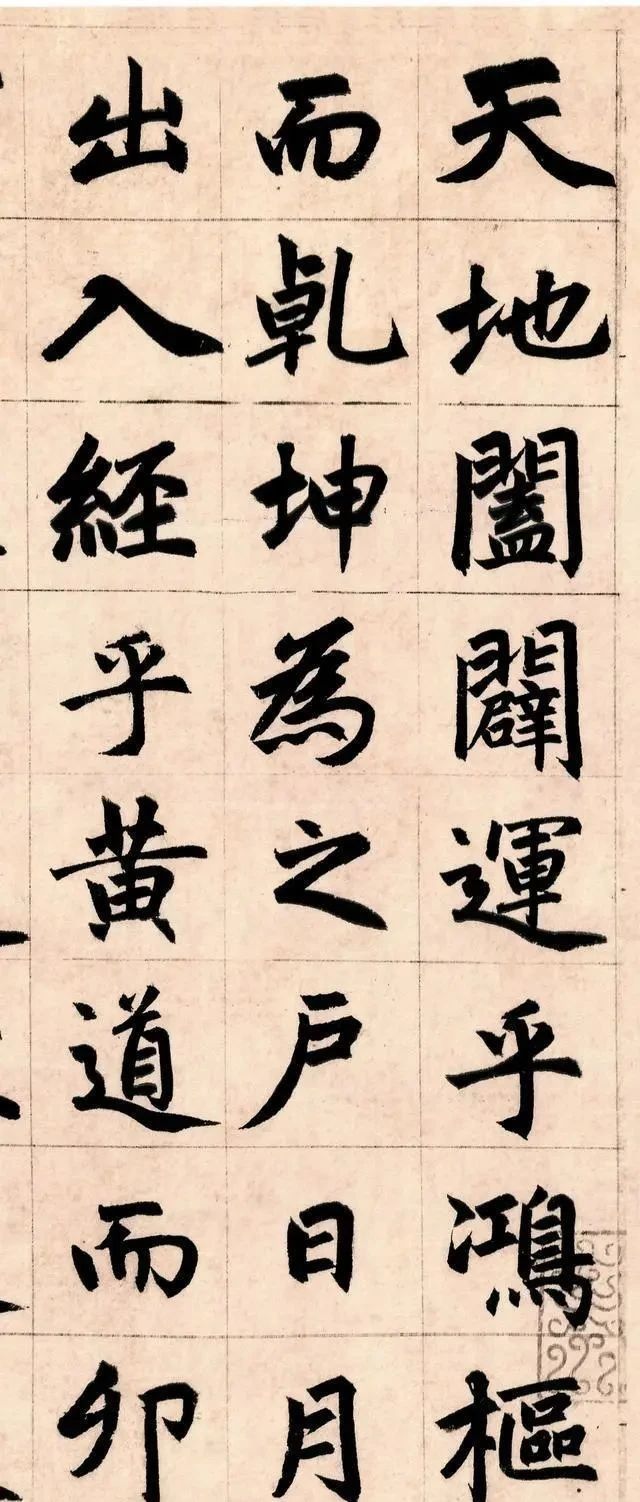 天地闔闢運乎鴻樞
而乹坤為之户日月
出入經乎黄道而卯